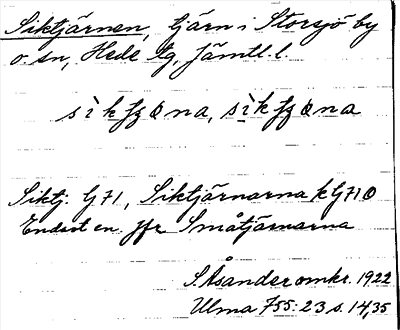 Siktjärnen, tjärn i Storsjö by
o. sn, Hede tg, Jämtl. l.
Siktj. G 71, Siktjärnarna k G 71 O
Endast en. Jfr Småtjärnarna
S. Åsander omkr. 1922
Ulma 755:23 s. 14, 35